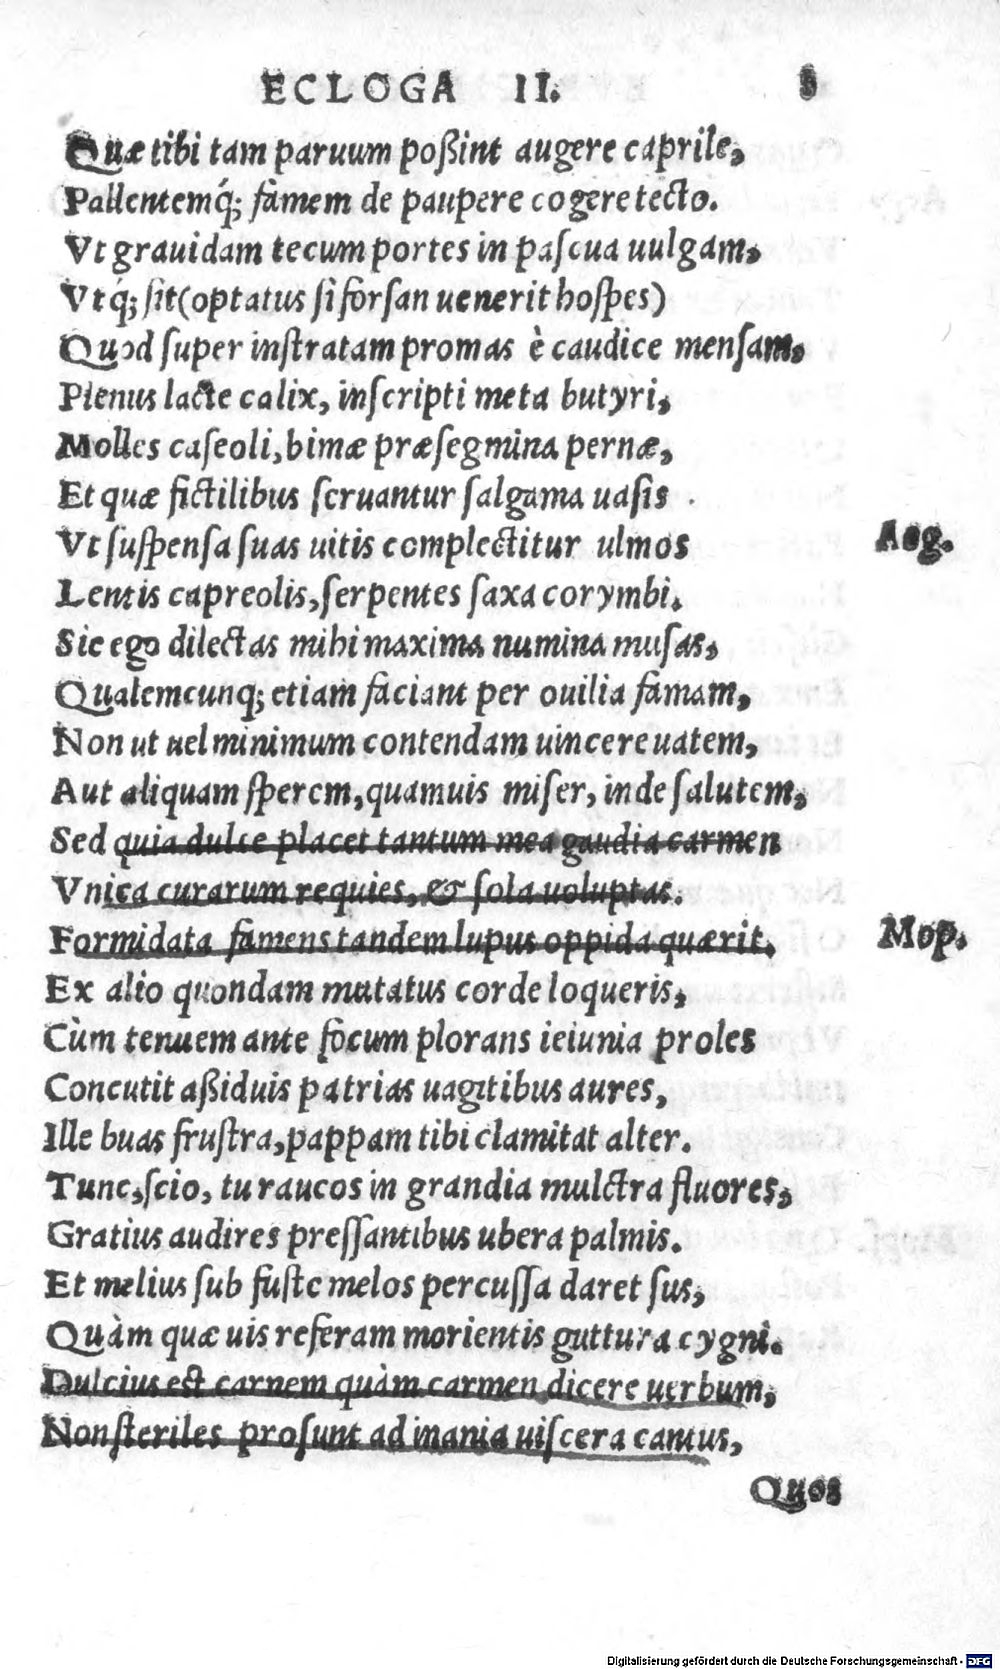 ECLOGA II.
Quæ tibi tam paruum poßint augere caprile,
Pallentemq́; famem de paupere cogere tecto.
Vt grauidam tecum portes in pascua uulgam,
Vtq́; sit (optatus si forsan uenerit hospes)
Quod super instratam promas è caudice mensam,
Plenus lacte calix, inscripti meta butyri,
Molles caseoli, bimæ præsegmina pernæ,
Et quæ fictilibus seruantur salgama uasis.
Vt suspensa suas uitis complectitur ulmos Aeg.
Lentis capreolis, serpentes saxa corymbi.
Sic ego dilectas mihi maxima numina musas,
Qualemcunq; etiam faciant per ouilia famam,
Non ut uel minimum contendam uincere uatem,
Aut aliquam sperem, quamuis miser, inde salutem,
Sed quia dulce placet tantum mea gaudia carmen
Vnica curarum requies, & sola uoluptas.
Formidata famens tandem lupus oppida quærit. Mop.
Ex alio quondam mutatus corde loqueris,
Cùm tenuem ante focum plorans ieiunia proles
Concutit aßiduis patrias uagitibus aures,
Ille buas frustra, pappam tibi clamitat alter.
Tunc, scio, tu raucos in grandia mulctra fluores,
Gratius audires pressantibus ubera palmis.
Et melius sub fuste melos percussa daret sus,
Quàm quæ uis referam morientis guttura cygni.
Dulcius est carnem quàm carmen dicere uerbum,
Non steriles prosunt ad inania uiscera cantus,
Quos
Digitalisierung gefördert durch die Deutsche Forschungsgemeinschaft - DFG